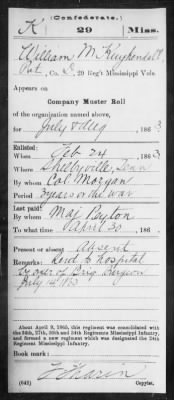 (Confederate.)
K 29 Miss.
William M Kuykendall
Pvt, Co. D, 29 Reg't Mississippi Vols.
Appears on
Company Muster Roll
of the organization named above,
for July & Aug, 1863.
Enlisted:
When Feb 24, 1863.
Where Shelbyville, Tenn
By whom Col Morgan
Period 3 years or the war
Last paid:
By whom Maj Peyton
To what time April 30, 186
Present or absent Absent
Remarks: Send to hospital
by order of Brig Surgeon
July 14 1863
About April 9, 1865, this regiment was consolidated with
the 24th, 27th, 30th and 34th Regiments Mississippi Infantry,
and formed a new regiment which was designated the 24th
Regiment Mississippi Infantry.
Book mark:
(642) Copyist.